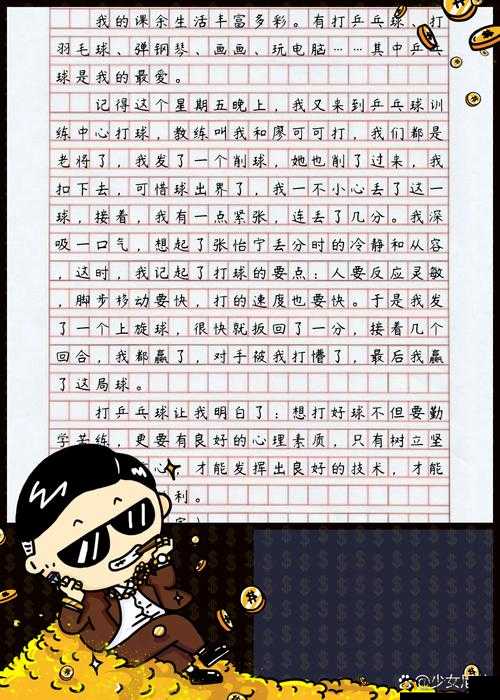 我的课余生活丰富多彩。有打乒乓球、打
羽毛球、弹钢琴、画画、玩电脑……其中乒乓
球是我的最爱。
记得这个星期五晚上，我又来到乒乓球训
练中心打球，教练叫我和廖可可打，我们都是
老将了，我发了一个削球，她也削了过来，我
扣下去，可惜球出界了，我一不小心丢了这一
球，接着，我有一点紧张，连丢了几分。我深
吸一口气，想起了张怡宁丢分时的冷静和从容
，这时，我记起了打球的要点：人要反应灵敏
，脚步移动要快，打的速度也要快。于是我发
了一个上旋球，很快就扳回了一分，接着几个
回合，我都赢了，对手被我打懵了，最后我赢
了这局球。
打乒乓球让我明白了：想打好球不但要勤
学苦练，更要有良好的心理素质，只有树立坚
心，才能发挥出良好的技术，才能
利。
@少女